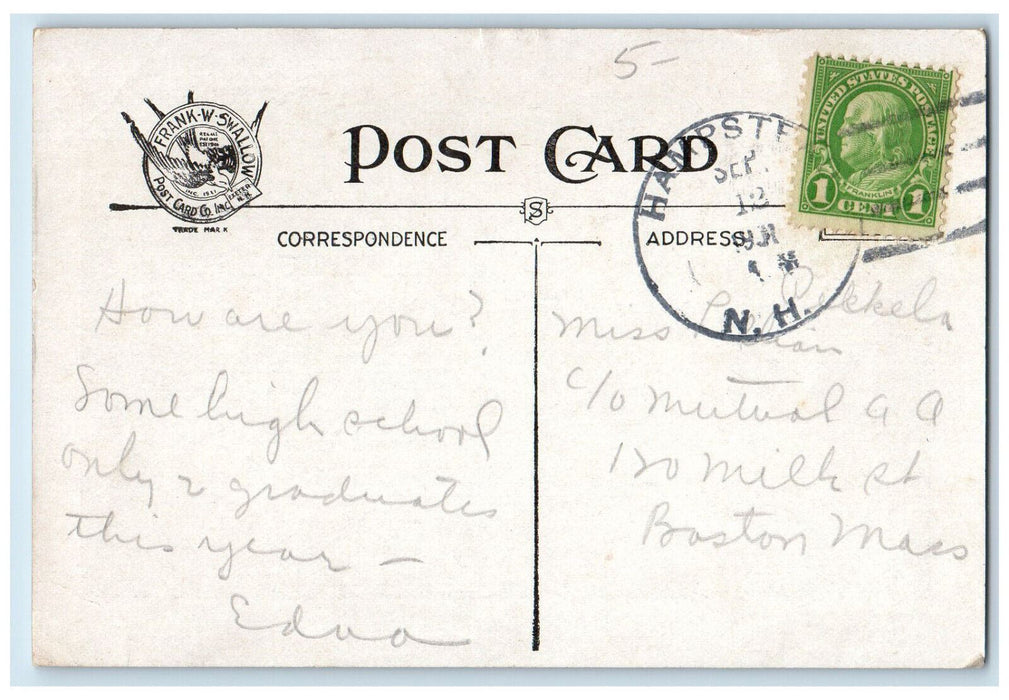 5-
FRANK·W·SWALLOW
INC. 1911
POST CARD CO. INC.
EXETER N.H.
TRADE MARK
POST CARD
S
HAMPSTE
SEP
12
N.H.
UNITED STATES POSTAGE
FRANKLIN
1 CENT 1
CORRESPONDENCE
ADDRESS
How are you?
Some high school
only 2 graduates
this year —
Edna
Miss Pekkela
c/o Mutual A A
120 Milk st
Boston Mass